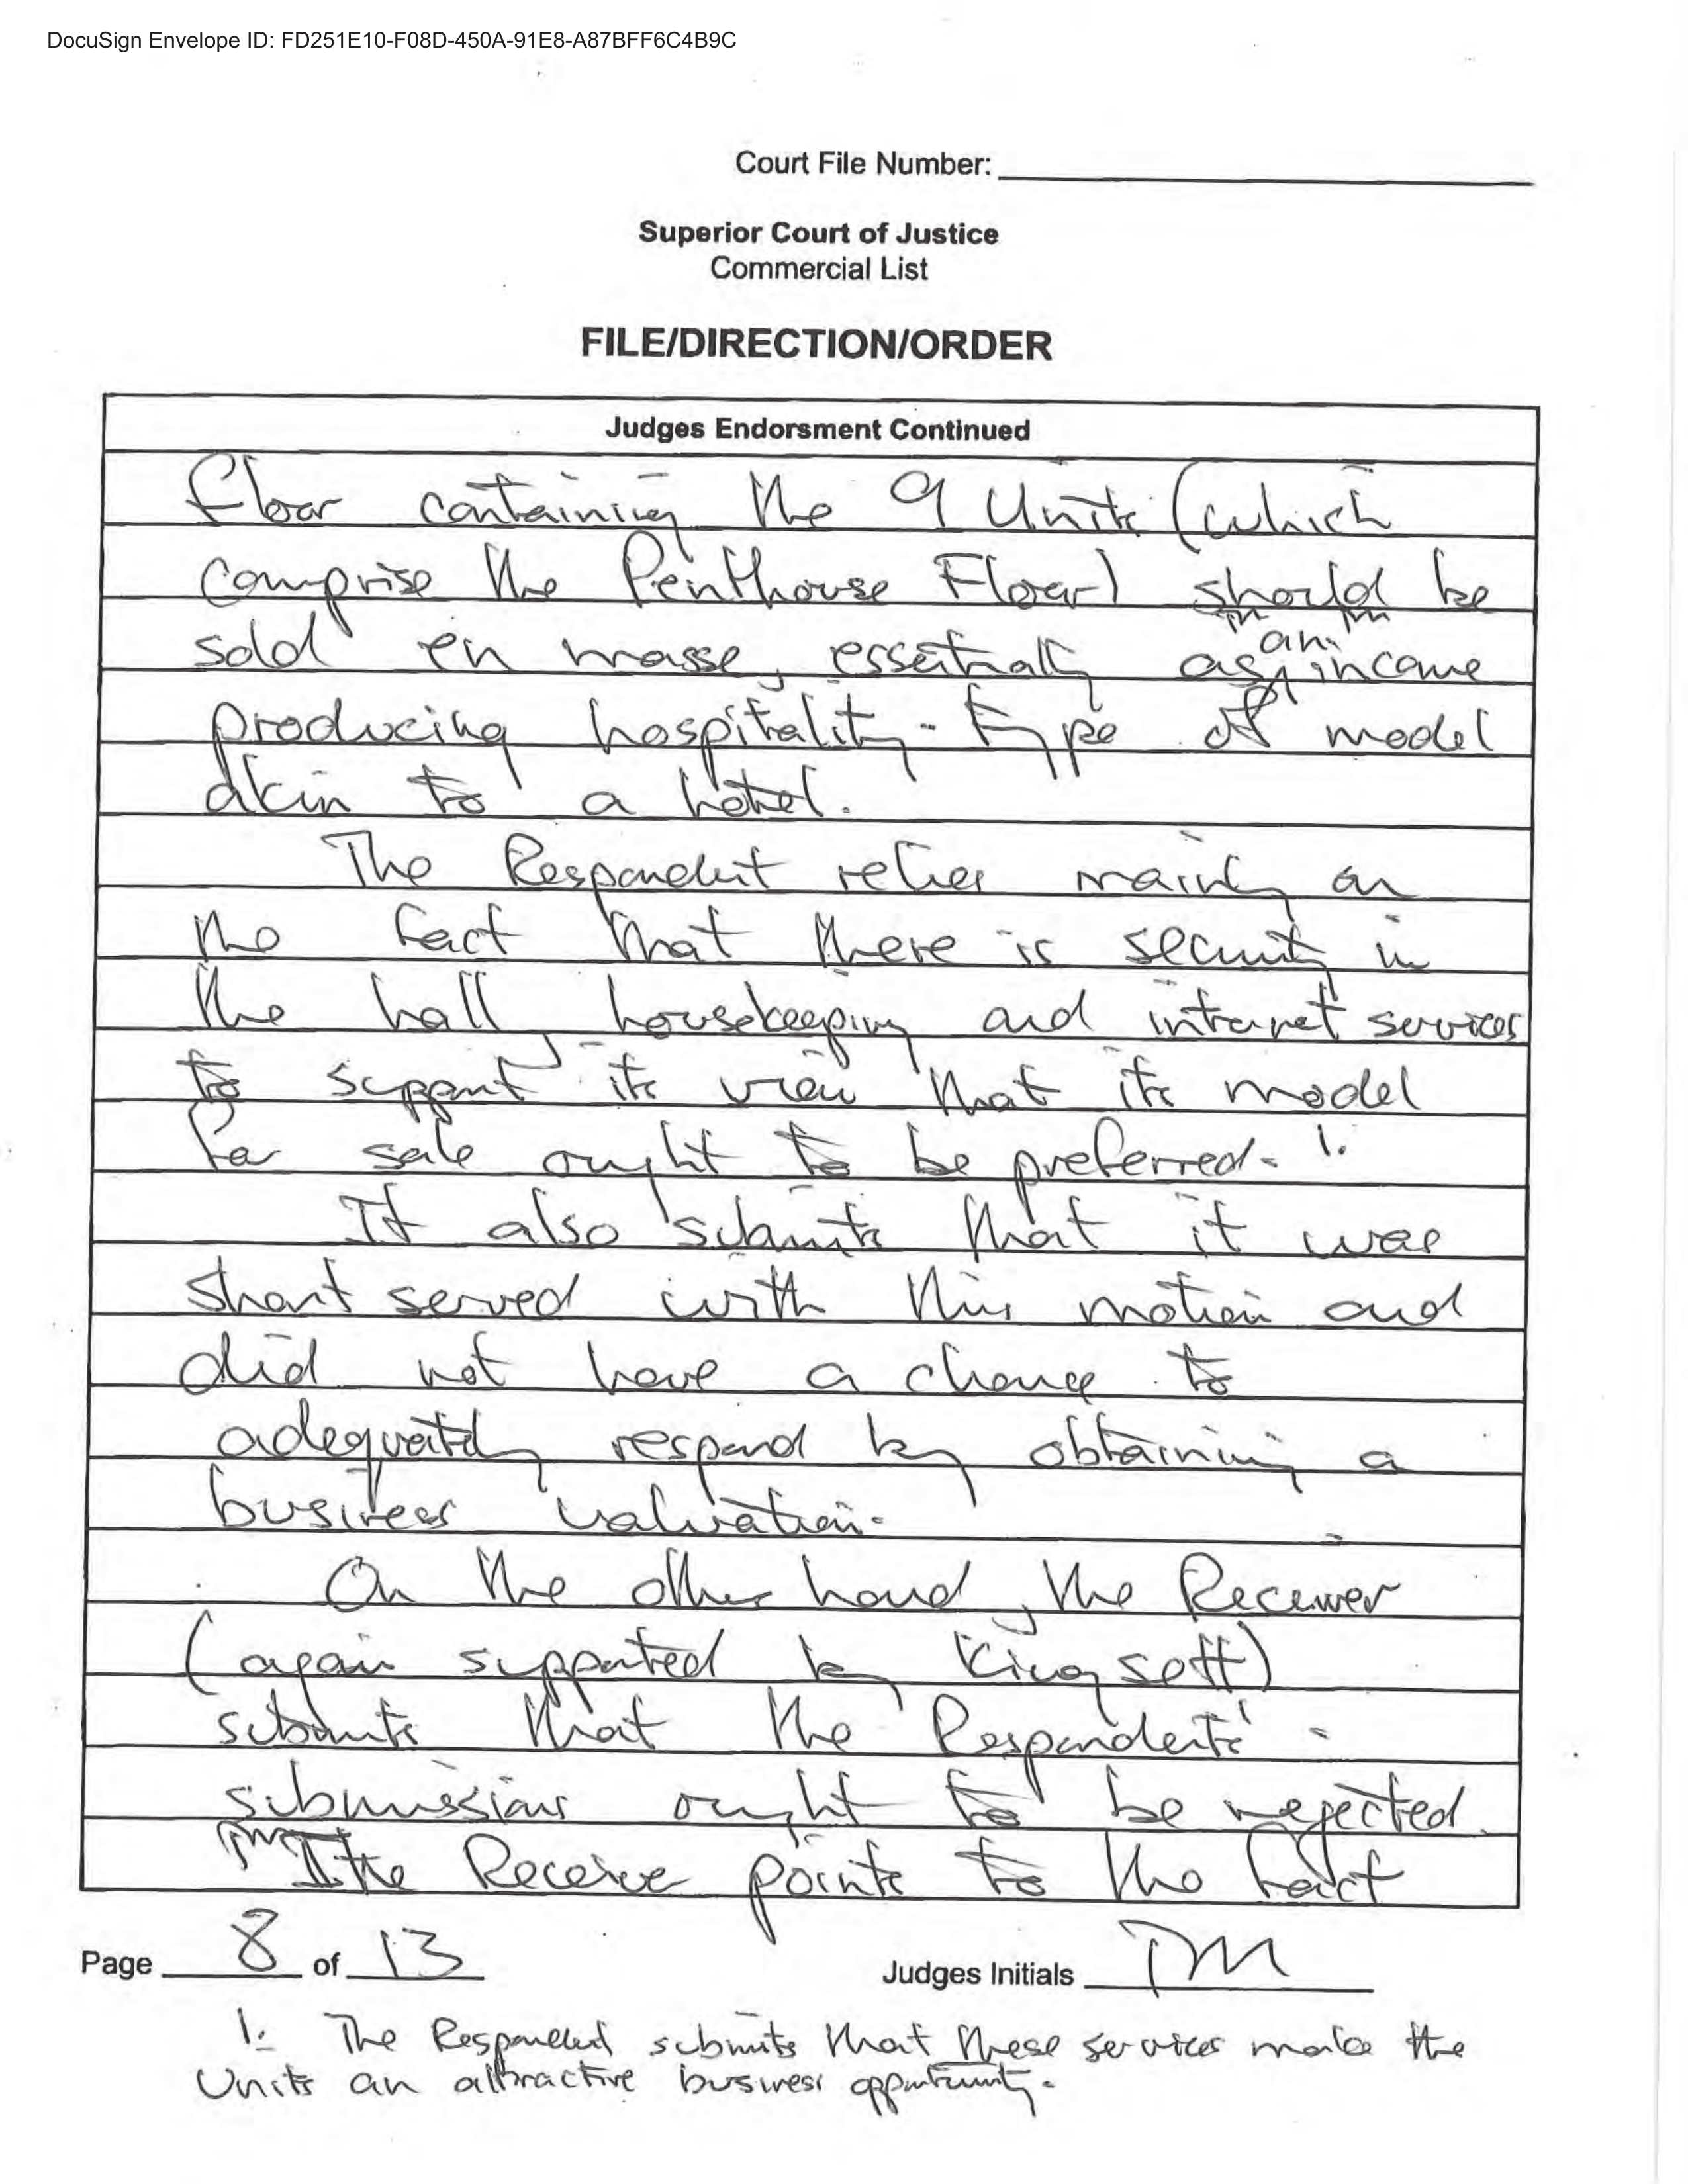 DocuSign Envelope ID: FD251E10-F08D-450A-91E8-A87BFF6C4B9C
Court File Number:
Superior Court of Justice
Commercial List
FILE/DIRECTION/ORDER
Judges Endorsment Continued
floor containing the 9 Units (which
comprise the Penthouse Floor) should be
sold en masse, essentially as an income
producing hospitality-type of model
akin to a hotel.
The Respondent relies mainly on
the fact that there is security in
the hall, housekeeping and intranet services
to support its view that its model
for sale ought to be preferred. 1.
It also submits that it was
short served with this motion and
did not have a chance to
adequately respond by obtaining a
business valuation.
On the other hand, the Receiver
(again supported by Kingsett)
submits that the Respondents'
submissions ought to be rejected.
The Receiver points to the fact
Page 8 of 13
Judges Initials TM
1. The Respondent submits that these services make the
Units an attractive business opportunity.